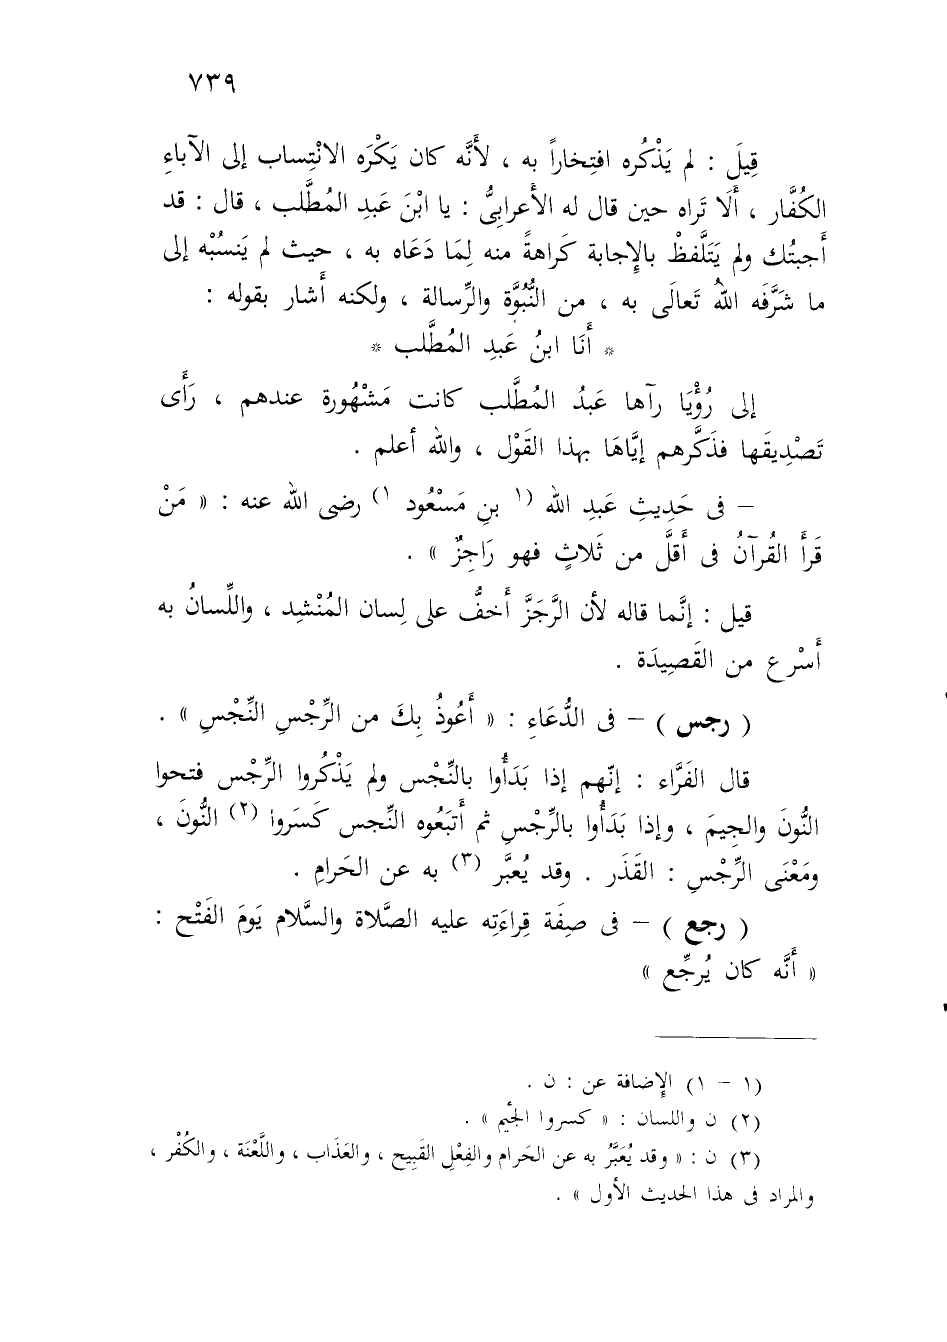 ٧٣٩
قِيلَ : لم يَذْكُره افتِخاراً به ، لأَنَّه كان يَكْرَه الانْتِساب إلى الآباءِ
الكُفَّار ، أَلَا تَراه حين قال له الأَعرابِىُّ : يا ابْنَ عَبدِ المُطَّلب ، قال : قد
أَجبتُك ولم يَتَلَّفظْ بالإِجابة كَراهةً منه لِمَا دَعَاه به ، حيث لم يَنسُبْه إلى
ما شَرَّفَه اللهُ تَعالَى به ، من النُّبُوَّة والرِّسالة ، ولكنه أَشار بقوله :
* أَنَا ابنُ عَبدِ المُطَّلب *
إلى رُؤْيَا رآها عَبدُ المُطَّلب كانت مَشْهُورة عندهم ، رَأَى
تَصْدِيقَها فذَكَّرهم إيَّاهَا بهذا القَوْل ، والله أعلم .
– فى حَدِيثِ عَبدِ الله (١ بنِ مَسْعُود ١) رضى الله عنه : « مَنْ
قَرأَ القُرآنُ فى أَقلَّ من ثَلاثٍ فهو رَاجِزٌ » .
قيل : إنَّما قاله لأن الرَّجَزَّ أَخفُّ على لِسان المُنْشِد ، واللِّسانُ به
أَسْرع من القَصِيدَة .
( رجس ) – فى الدُّعَاءِ : « أَعُوذُ بِكَ من الرِّجْسِ النِّجْسِ » .
قال الفَرَّاء : إنّهم إذا بَدَأُوا بالنِّجْس ولم يَذْكُروا الرِّجْس فتحوا
النُّونَ والجِيمَ ، وإذا بَدَأُوا بالرِّجْسِ ثم أَتبَعُوه النِّجس كَسَروا (٢) النُّونَ ،
ومَعْنَى الرِّجْسِ : القَذَر . وقد يُعبَّر (٣) به عن الحَرامِ .
( رجع ) – فى صِفَة قِراءَتِه عليه الصَّلاة والسَّلام يَومَ الفَتْح :
« أَنَّه كان يُرجِّع »
(١ – ١) الإِضافة عن : ن .
(٢) ن واللسان : « كسروا الجيم » .
(٣) ن : « وقد يُعَبَّرُ به عن الحَرام والفِعْلِ القَبِيح ، والعَذَاب ، واللَّعْنَة ، والكُفْر ،
والمراد فى هذا الحديث الأول » .